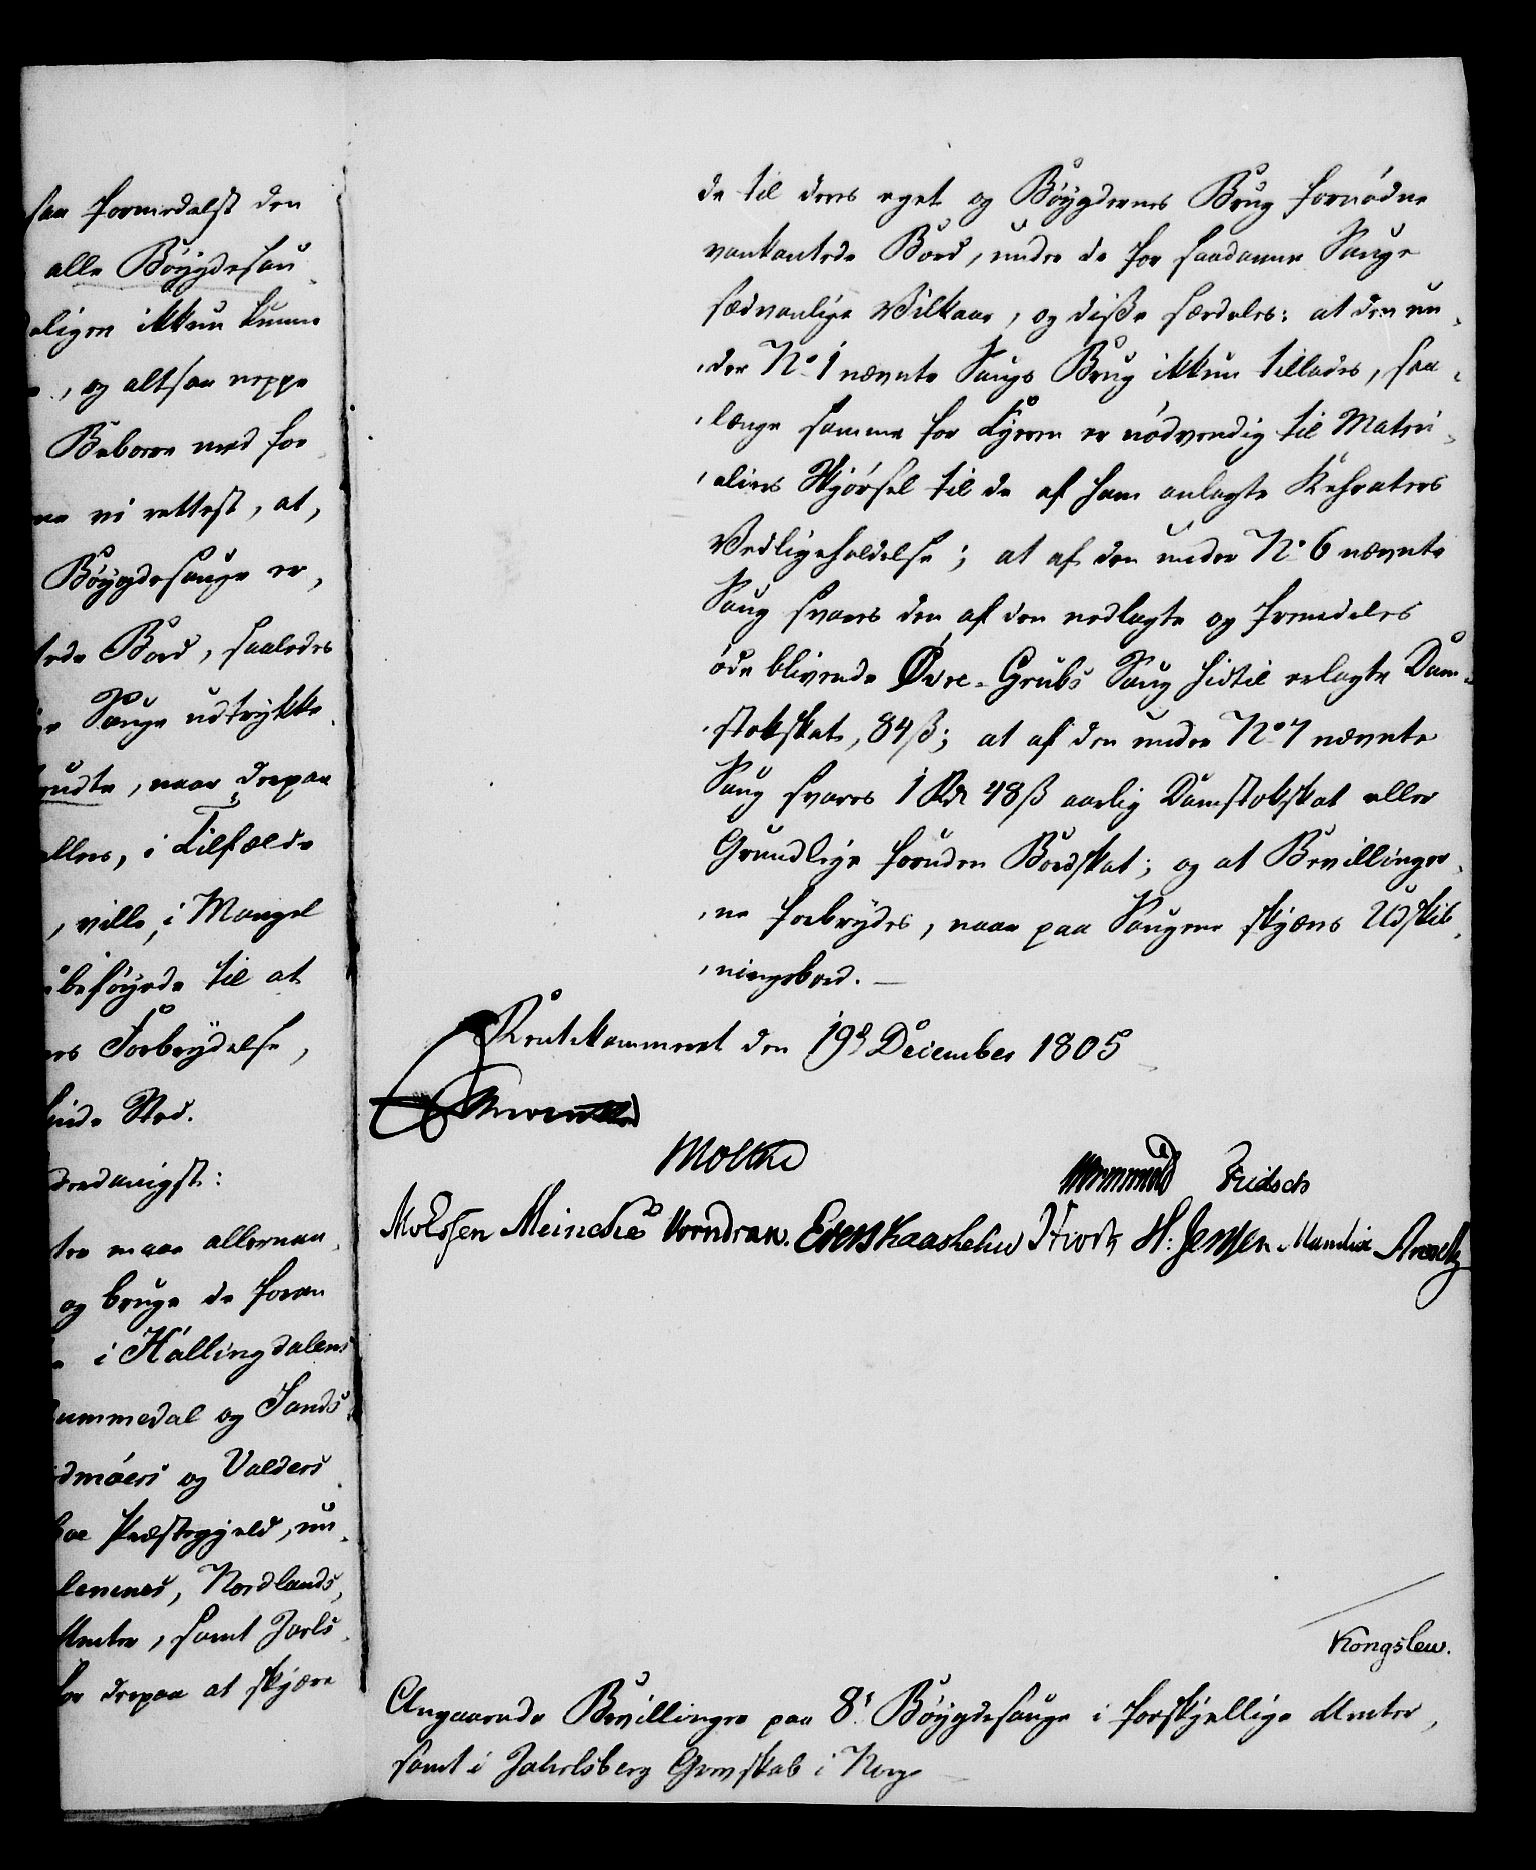 saa formedelst den
alle Bøygdesau
eligen ikkun kunne
, og altsaa neppe
Beboere med for
vi rettest, at,
Bøygdesauge er,
tede Bord, saaledes
Sauge udtrykke
, naar derpaa
ellers, i Tilfælde
, ville, i Mangel
beføyede til at
Forbrydelse,
Sted.
derdanigst:
maae allernaa
og bruge de foran
i Hallingdalens
ummedal og Sands
og Valders
Præstegjeld, un
lenenes, Nordlands,
Amter, samt Jarls
derpaa at skjære
de til deres eget og Bøygdernes Brug fornødne
vankantede Bord, under de for saadanne Sauge
sædvanlige Vilkaar, og disse særdeles: at den un-
-der No 1 nævnte Saugs Brug ikkun tillades, saa-
-længe samme for Eyeren er nødvendig til Materi-
-aliers Skjørsel til de af ham anlagte Kehraters
Vedligeholdelse; at af den under No 6 nævnte
Saug svares den af den nedlagte og fremdeles
øde blivende Øvre-Grubs Saug hidtil erlagte Dam-
-stokskat, 84 ß; at af den under No 7 nævnte
Saug svares 1 Rd 48 ß aarlig Damstokskat eller
Grundleje foruden Bordskat; og at Bevillinger-
-ne forbrydes, naar paa Saugene skjæres Udskib-
-ningsbord. —
Rentekammeret den 19d December 1805
Moltke
Wormskiold Fridsch
Meinche Wormdran. Evers Knashehn H: Jensen Manthey
Kongslew.
Angaaende Bevillinger paa 8t Bøygdesauge i forskjellige Amter,
samt i Jahrlsberg Grevskab i Norge